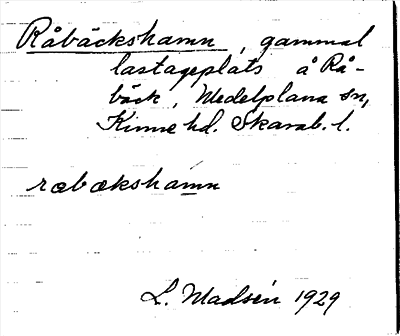 Råbäckshamn, gammal
lastageplats å Rå-
bäck, Medelplana sn,
Kinne hd. Skarab. l.
ræbækshamn
L. Madsén 1929